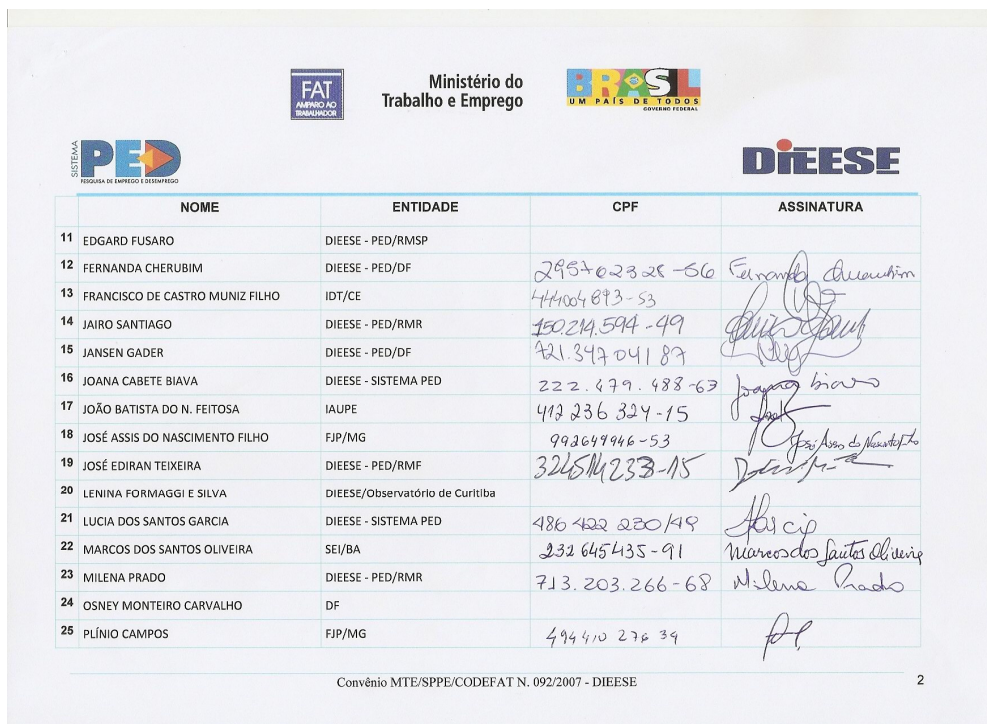 FAT
AMPARO AO
TRABALHADOR
Ministério do
Trabalho e Emprego
BRASIL
UM PAÍS DE TODOS
GOVERNO FEDERAL
SISTEMA
PED
PESQUISA DE EMPREGO E DESEMPREGO
DIEESE
NOME ENTIDADE CPF ASSINATURA
11 EDGARD FUSARO DIEESE - PED/RMSP
12 FERNANDA CHERUBIM DIEESE - PED/DF 295702328-56 Fernanda Cherubim
13 FRANCISCO DE CASTRO MUNIZ FILHO IDT/CE 444004893-53
14 JAIRO SANTIAGO DIEESE - PED/RMR 150.214.594-49
15 JANSEN GADER DIEESE - PED/DF 721.347041 87
16 JOANA CABETE BIAVA DIEESE - SISTEMA PED 222.479.488-63 Joana Biava
17 JOÃO BATISTA DO N. FEITOSA IAUPE 412 236 324-15
18 JOSÉ ASSIS DO NASCIMENTO FILHO FJP/MG 992649946-53 José Assis do Nascimento Fº
19 JOSÉ EDIRAN TEIXEIRA DIEESE - PED/RMF 324514233-15
20 LENINA FORMAGGI E SILVA DIEESE/Observatório de Curitiba
21 LUCIA DOS SANTOS GARCIA DIEESE - SISTEMA PED 486 422 230/49
22 MARCOS DOS SANTOS OLIVEIRA SEI/BA 232 645435-91 Marcos dos Santos Oliveira
23 MILENA PRADO DIEESE - PED/RMR 713.203.266-68 Milena Prado
24 OSNEY MONTEIRO CARVALHO DF
25 PLÍNIO CAMPOS FJP/MG 494410 276 39
Convênio MTE/SPPE/CODEFAT N. 092/2007 - DIEESE 2